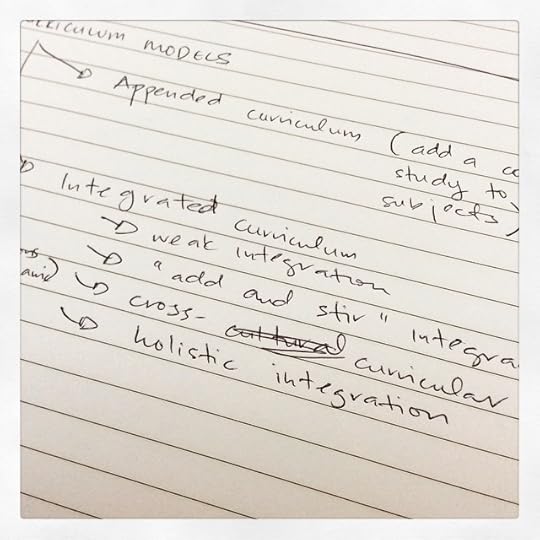 CURRICULUM MODELS
Appended curriculum (add a
study to
subjects)
Integrated curriculum
weak integration
"add and stir" integra
cross- cultural curricular
holistic integration